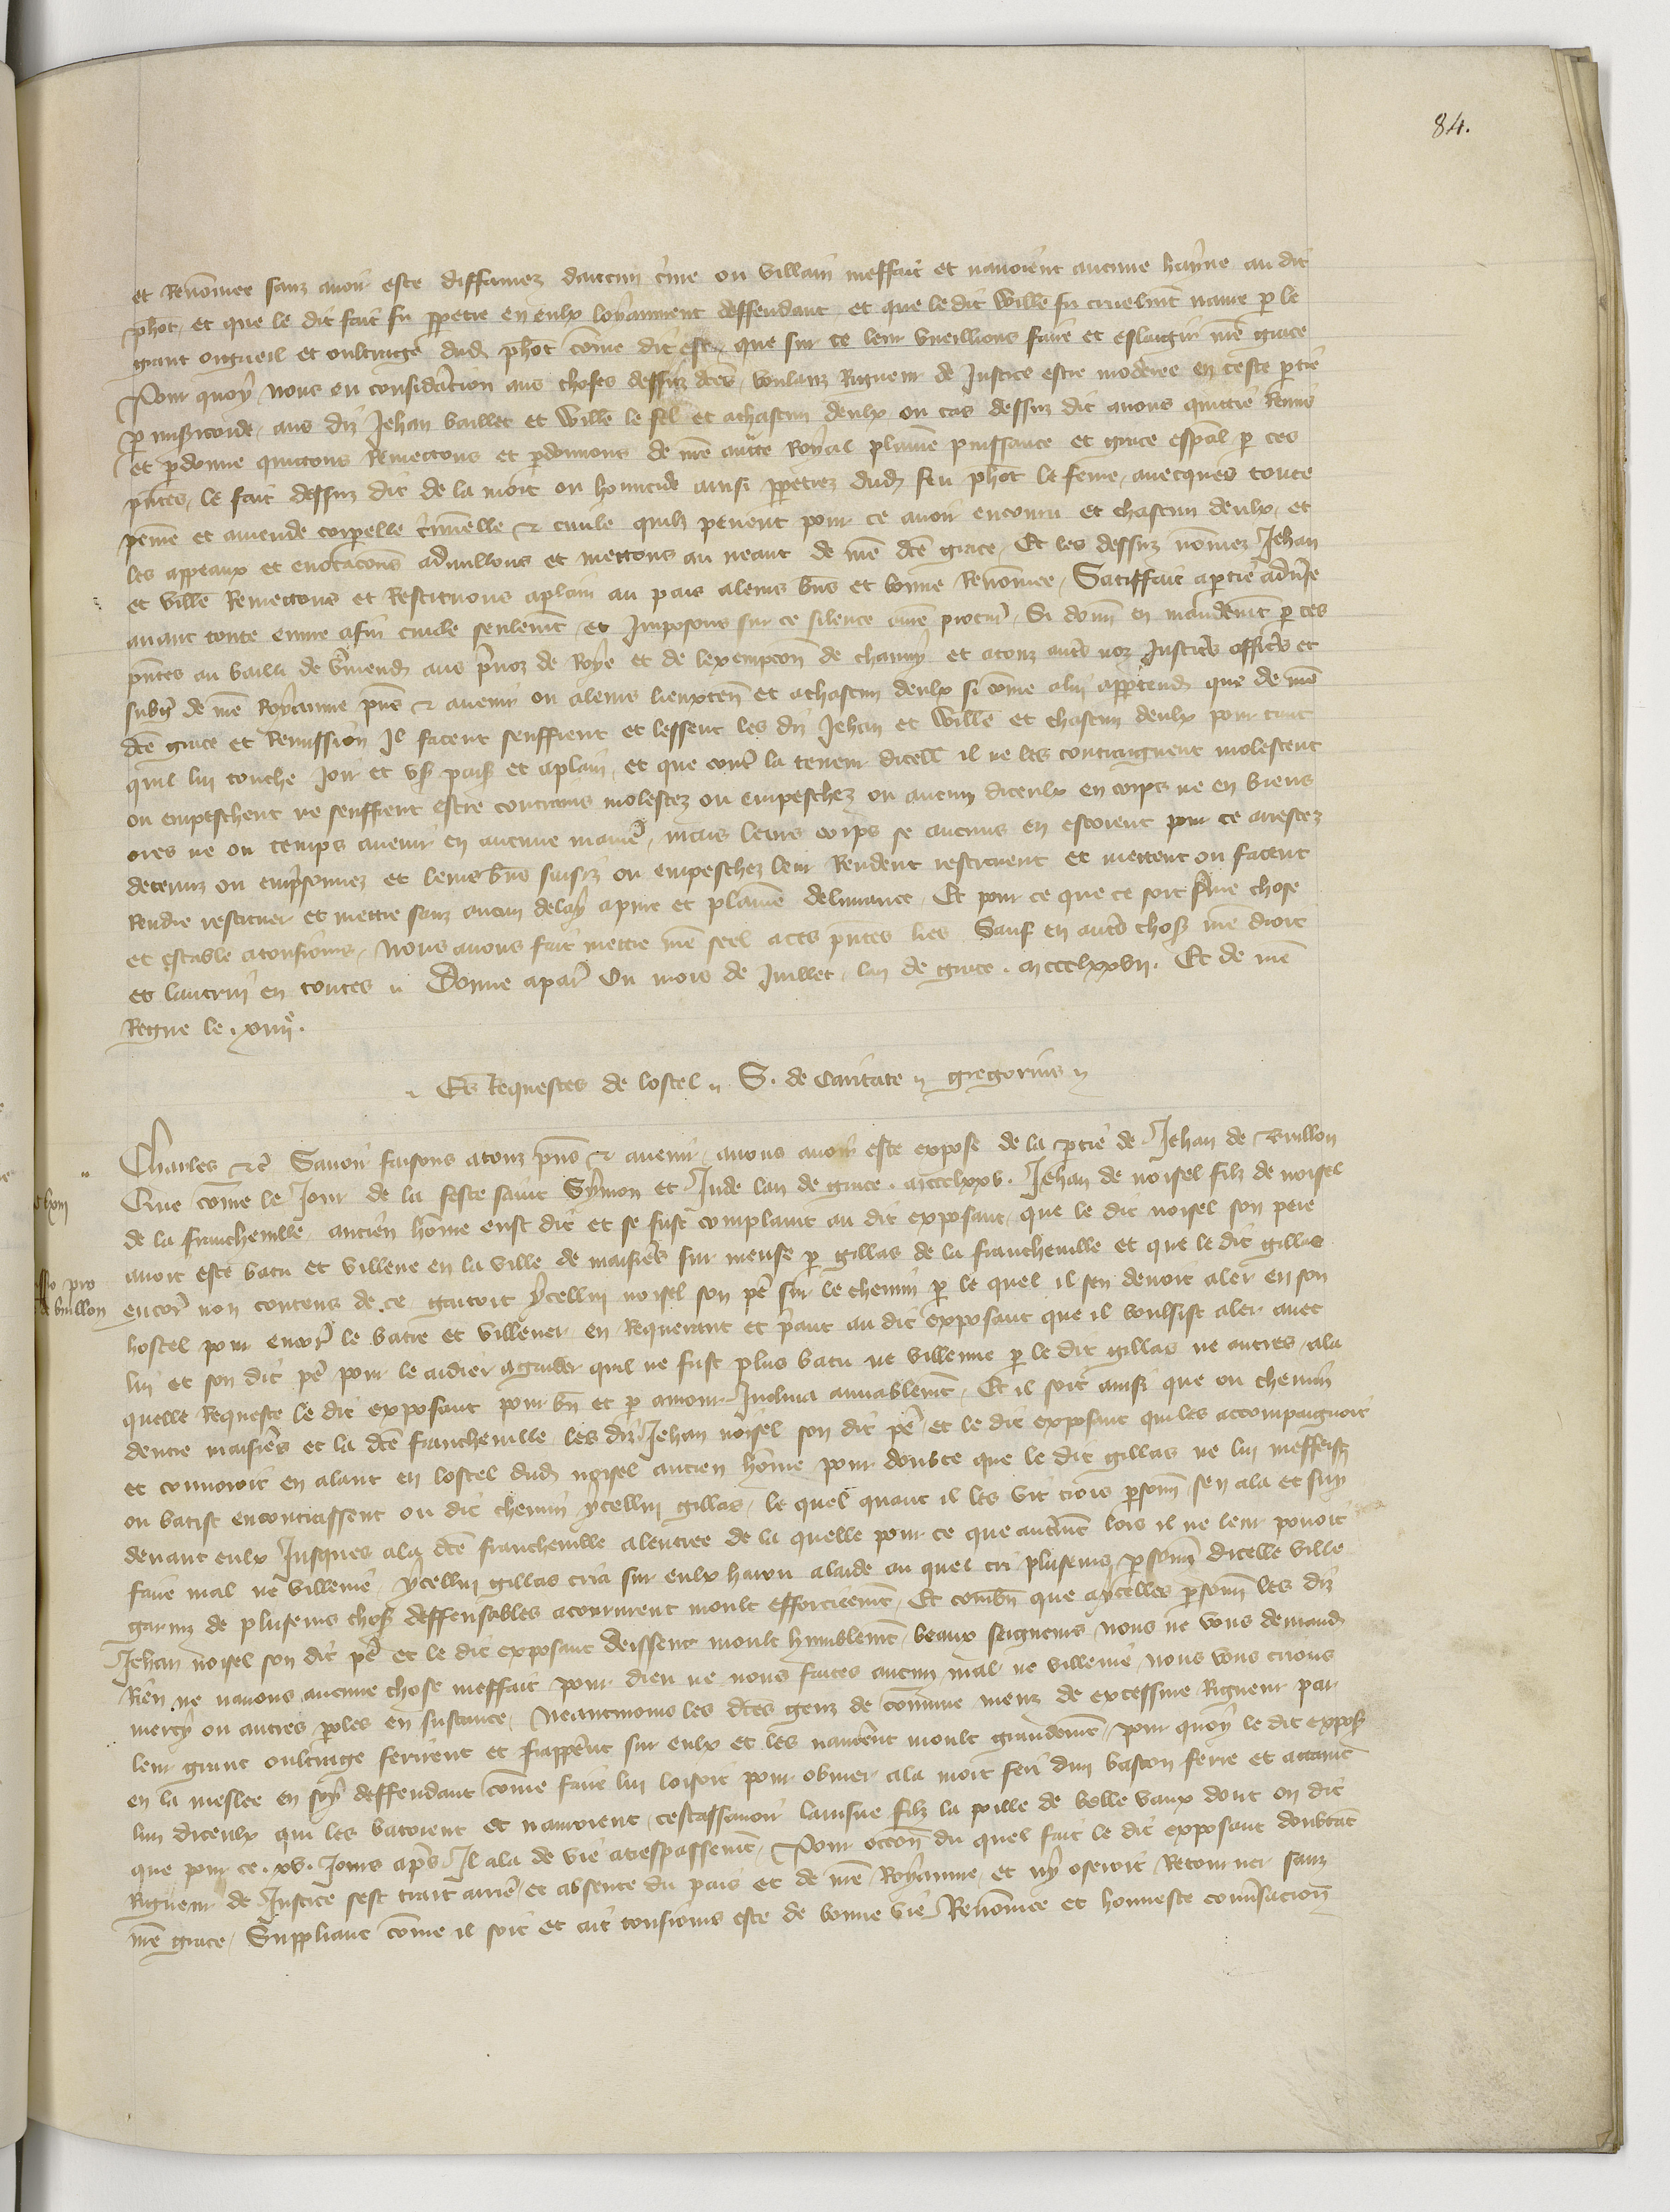 84.
et Renom̃ee sanz avoir este diffamez daucun crime ou villain meffait et navoient aucune hayne au dit
phot, et que le dit fait fu ꝑpetre en eulx loyaument deffendant et que le dit Willẽ fu cruelmẽt navre ꝑ le
grant orgueil et oultrage dud phot cõme dit est, que sur ce leur vueillions faire et eslargir nr̃e grace
Pour quoy nous en consideracion aus choses dessuz dc̃es, voulanz Rigueur de Justice estre moderee en ceste ꝑtie
ꝑ misericorde, aus diz Jehan vaillet et Willẽ le fel et achascun deulx ou cas dessuz dit avons quittie Remis
et ꝑdonne quittons Remettons et ꝑdonnons de nr̃e auctẽ Royal plainẽ puissance et grace esp̃al ꝑ ces
pñtes, le fait dessuz dit de la mort ou homicide ainsi ꝑpetrez dud feu phot le feure, avecques toute
peinẽ et amende corporelle crim̃elle et civile quilz pevent pour ce avoir encouru et chascun deulx, et
les appeaux et evocacõns adnullons et mettons au neant de nr̃e dc̃e grace, Et les dessuz nõmez Jehan
et villẽ Remettons et Restituons aplain au pais aleurs biẽs et bonne Renom̃ee, Satiffait apartie adv̾se
avant toute euvre afin civile seulemẽt, et Imposons sur ce silence anr̃e procur̾, Si donñ en mandemẽt ꝑ ces
pñtes au bailli de v̾mend aus p̃voz de Roye et de lexempcõn de chauny et atouz autr̾s noz Justic̾s offic̾s et
subgz de nr̃e Royaume pñs et avenir ou aleurs lieuxteñ et achascun deulx si cõme alui apꝑtend que de nr̃e
dc̃e grace et Remission Il facent seuffrent et lessent les diz Jehan et Willẽ et chascun deulx pour tant
quil lui touche Joir et user paisiblemẽt et aplain, et que contr̾ la teneur dicell il ne les contraignent molestent
ou empeschent ne seuffrent estre contrains molestez ou empeschez ou aucun diceulx en corps ne en biens
ores ne ou temps avenir en aucune manier̾, mais leurs corps se aucuns en estoient pour ce arrestez
detenuz ou emp̃sonnez et leurs biẽs saisiz ou empeschez leur Rendent restituent et mettent ou facent
Rendre restituer et mettre sanz aucun delay apure et plainẽ delivrance, Et pour ce que ce soit ferme chose
et estable atousiours, Nous avons fait mettre nr̃e seel aces pñtes lr̃es Sauf en autr̾s choses nr̃e droit
et lautrui en toutes Donne apar̾ Ou mois de Juillet, lan de grace . mccclxxvij . Et de nr̃e
Regne le . xiiij̾ᵉ.
Es Requestes de lostel S. de Caritate gregorius
Charles etc̃ Savoir faisons atouz pñs et avenir, avons avoir este expose de la ꝑtie de Jehan de Buillon
Que cõme le Jour de la feste saint Symon et Jude lan de grace . mccclxxv . Jehan de noisel filz de noisel
de la francheville, ancien hõme eust dit et se fust complaint au dit exposant, que le dit noisel son pere
avoit este batu et villene en la ville de maisier̾s sur meuse ꝑ gillas de la francheville et que le dit gillas
encor̾ non contens de ce gaitoit ycellui noisel son pe̾ sur le chemin ꝑ le quel il sen devoit aler en son
hostel pour encor̾ le batre et villener en Requerant et p̃ant au dit exposant que il voulsist aler avec
lui et son dit pe̾ pour le aidier agarder quil ne fust plus batu ne villenne ꝑ le dit gillas ne autres, ala
quelle Requeste le dit exposant pour bñ et ꝑ amour Inclina amiablemẽt, Et il soit ainsi que ou chemin
dentre maisier̾s et la dc̃e francheville les diz Jehan noisel son dit pe̾ et le dit exposant qui les accompaignoit
et convoioit en alant en lostel dud noisel ancien hõme pour doubte que le dit gillas ne lui meffeist
ou batist encontrassent ou dit chemin ycellui gillas, le quel quant il les vit trois ꝑsonñ sen ala et fuy
devant eulx Jusques ala dc̃e francheville alentree de la quelle pour ce que autremẽt lors il ne leur povoit
faire mal ne villenie, ycellui gillas cria sur eulx harou alaide au quel cri plusieurs ꝑsonñ dicelle ville
garniz de plusieurs choses deffensables acoururent moult efforcieemẽt, Et combñ que aycelles ꝑsonñ les diz
Jehan noisel son dit pe̾ et le dit exposant deissent moult humblemẽt, beaux seigneurs nous ne vous demand
Rien ne navons aucune chose meffait pour dieu ne nous faites aucun mal ne villenie, nous vous crions
mercy ou autres ꝑoles en sustance, Neantmoins les dc̃es genz de commune meuz de excessive Rigueur par
leur grant oultrage ferirent et frapper̾nt sur eulx et les navrer̾nt moult grandemẽt, pour quoy le dit exposãt
en la meslee en soy deffendant cõme faire lui loisoit pour obvier ala mort feri dun baston ferre et attaint
lun diceulx qui les batoient et navroient, cestassavoir lainsne filz la poille de belle vaux dont on dit
que pour ce . xv . Jours apr̾s Il ala de vie atrespassemẽt, Pour occõn du quel fait le dit exposant doubtãt
Rigueur de Justice sest trait arrier̾ et absente du pais et de nr̃e Royaume, et ny oseroit Retourner sanz
nr̃e grace, Suppliant cõme il soit et ait tousiours este de bonne vie Renom̃ee et honneste conv̾sacion
pro
de buillon